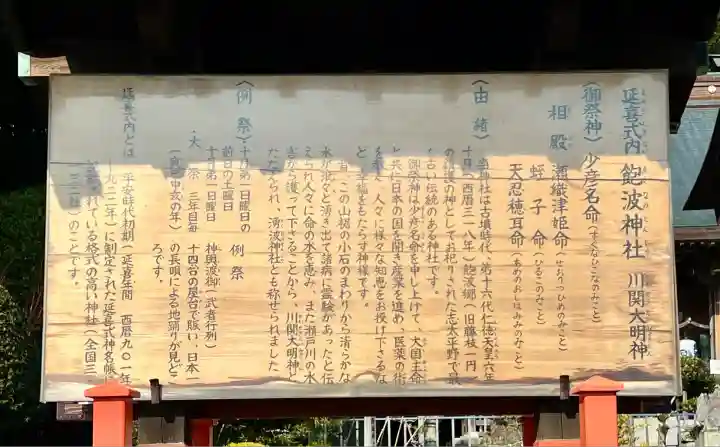 延喜式内 飽波神社 川関大明神
（御祭神）少彦名命（すくなひこなのみこと）
相殿 瀬織津姫命（せおりつひめのみこと）
蛭子命（ひるこのみこと）
天忍穂耳命（あめのおしほみみのみこと）
（由緒）当神社は古墳時代、第十六代仁徳天皇六年
十月（西暦三一八年）飽波郷（旧藤枝一円）
の守護の神としてお祀りされた志太平野で最
も古い伝統のある神社です。
御祭神は少彦名命を申し上げて、大国主命
と共に日本の国を開き産業を進め、医薬の術
を導く、人々に様々な知恵をお授け下さるな
ど、幸福をもたらす神様です。
昔、この山裾の小石のまわりから清らかな
水が北々と湧き出て諸病に霊験があったと伝
えられ人々に命の水を恵み、また瀬戸川の水
害から護って下さることから、川関大明神と
たたえられ、湧波神社とも称せられました
（例祭）・十月第一日曜日の
前日の土曜日 例祭
十月第一日曜日 神輿渡御（武者行列）
・大祭 三年目毎 十四台の屋台で賑い、日本一
（寅巳申亥の年） の長唄による地踊りが見どこ
ろです。
延喜式内とは 平安時代初期（延喜年間 西暦九〇一年
～九二二年）に制定された延喜式神名帳
に記されている格式の高い神社（全国三一
三二社）のことです。